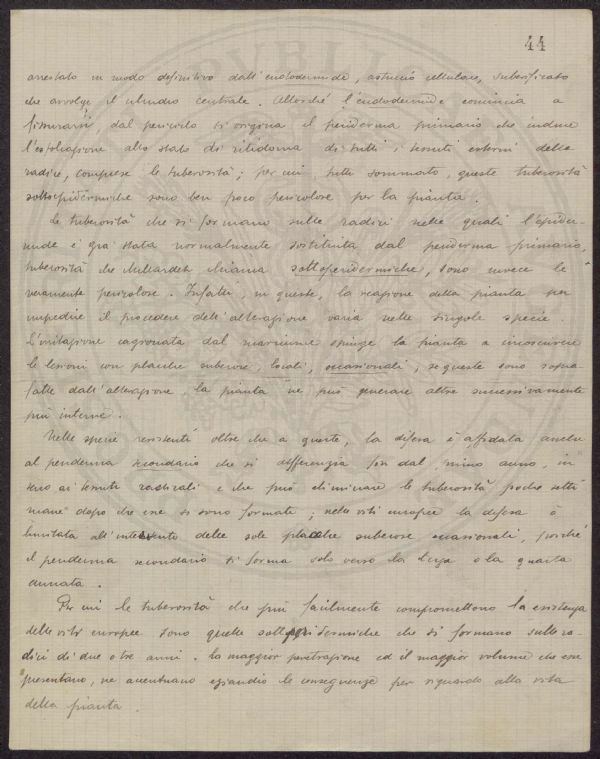 44
arrestato in modo definitivo dall'endodermide, astuccio cellulare, suberificato
che avvolge il cilindro centrale. Allorché l'endodermide comincia a
, dal periciclo si origina il periderma primario che induce
l'esfoliazione allo stato di ritidoma di tutti i tessuti esterni della
radice, comprese le tuberosità; per cui, tutto sommato, queste tuberosità
sottoepidermiche sono ben poco pericolose per la pianta.
Le tuberosità che si formano sulle radici nelle quali l'epider-
mide è già stata normalmente sostituita dal periderma primario,
tuberosità che Millardet chiama sottoperidermiche, sono invece le
veramente pericolose. Infatti, in queste, la reazione della pianta per
impedire il procedere dell'alterazione varia nelle singole specie.
L'irritazione cagionata dal marciume spinge la pianta a circoscrivere
le lesioni con placche suberose locali, occasionali; se queste sono sopra
fatte dall'alterazione, la pianta ne può generare altre successivamente
più interne.
Nelle specie resistenti oltre che a queste, la difesa è affidata anche
al periderma secondario che si differenzia fin dal primo anno, in
seno ai tessuti radicali e che può eliminare le tuberosità poche setti
mane dopo che esse si sono formate; nelle viti europee la difesa è
limitata all'intervento delle sole placche suberose occasionali, poiché
il periderma secondario si forma solo verso la terza o la quarta
annata.
Per cui le tuberosità che più facilmente compromettono la esistenza
delle viti europee sono quelle sottoperidermiche che si formano sulle ra-
dici di due o tre anni. La maggior penetrazione ed il maggior volume che esse
presentano, ne accentuano eziandio le conseguenze per riguardo alla vita
della pianta.